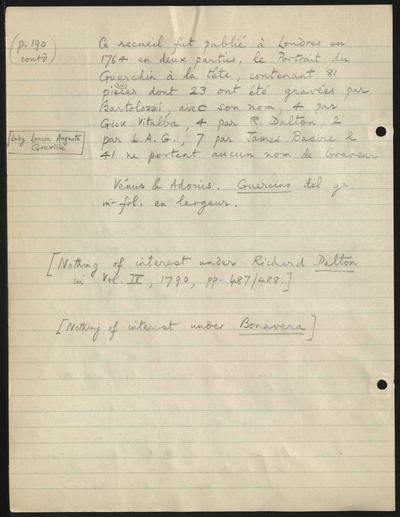 (p. 190
contd)
Ce recueil fut publié à Londres en
1764 en deux parties, le Portrait du
Guerchin à la tête, contenant 81
pièces (sic) dont 23 ont été gravées par
Bartolozzi, avec son nom, 4 par
Giov. Vitalba, 4 par R. Dalton, 2
[Lady Louisa Augusta
Greville]
par L.A.G., 7 par James Basire &
41 ne portent aucun nom de Graveur
Vénus & Adonis. Guercino del gr.
in-fol. en largeur.
[Nothing of interest under Richard Dalton
in Vol. II, 1790, pp. 487/488.]
[Nothing of interest under Bonavera]